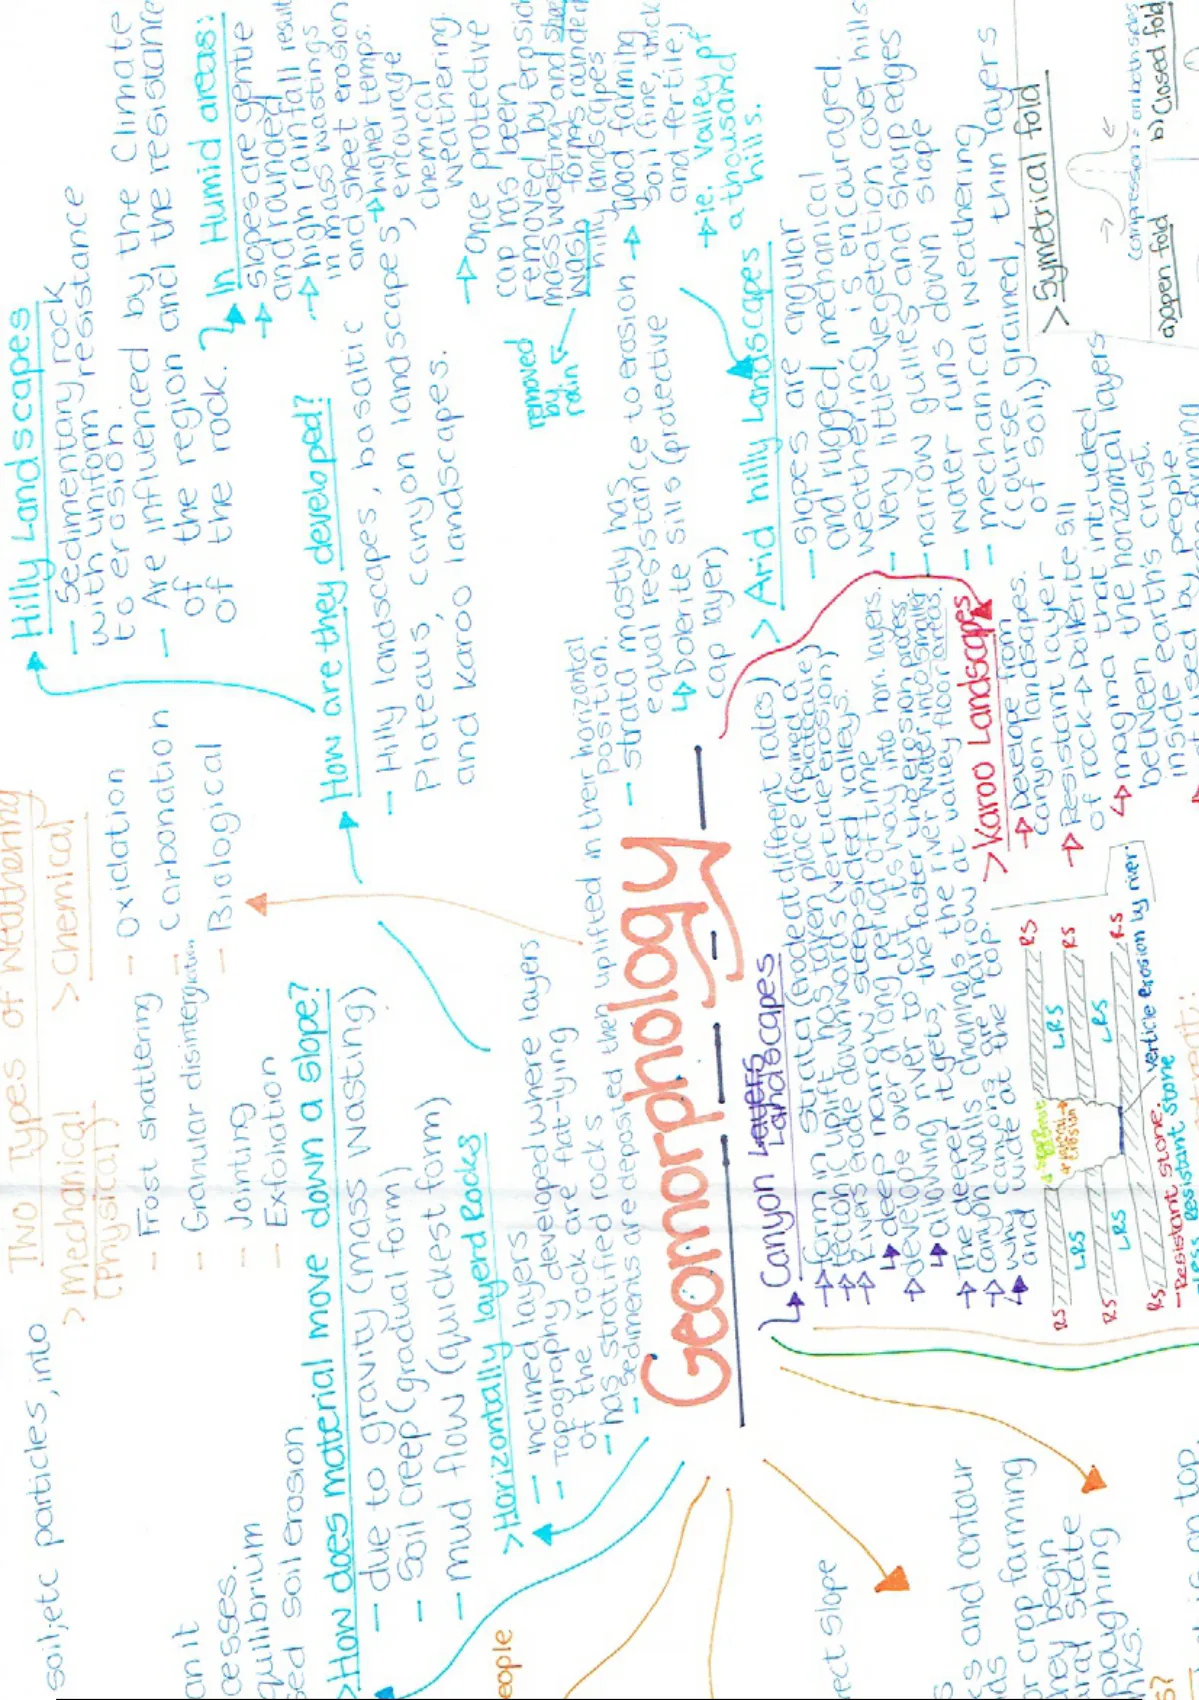 soil, etc particles, into
an it
cesses.
quilibrium
sed soil erosion
Two Types of Weathering
> Mechanical
(Physical)
> Chemical
- Frost shattering
- Granular disintergration
- Jointing
- Exfoliation
- Oxidation
- Carbonation
- Biological
Hilly Landscapes
- Sedimentary rock
with uniform resistance
to erosion.
- Are influenced by the climate
of the region and the resistance
of the rock.
In Humid areas:
slopes are gentle
and rounded
high rainfall result
in mass wastings
and sheet erosion
higher temps.
encourage
chemical
weathering.
Once protective
cap has been
removed by erosion
mass wasting and
wash forms rounded
hilly landscapes.
removed
by
rain
good farming
soil (fine, thick
and fertile)
ie. Valley of
a thousand
hills.
How are they developed?
- Hilly landscapes, basaltic
Plateaus, canyon landscapes,
and karoo landscapes.
> How does material move down a slope?
- due to gravity (mass wasting)
- Soil creep (gradual form)
- mud flow (quickest form)
> Horizontally layerd Rocks
- Inclined layers
- Topography developed where layers
of the rock are flat-lying
- has stratified rocks
- sediments are deposited then uplifted in their horizontal
position.
- strata mostly has
equal resistance to erosion
Dolerite sills (protective
cap layer)
Geomorphology
> Arid hilly Landscapes
- slopes are angular
and rugged, mechanical
weathering is encouraged.
- very little vegetation cover hills
- narrow gullies and sharp edges
- water runs down slope
- mechanical weathering
(course grained, thin layers
of soil)
Canyon Layers
Landscapes
form in strata (erode at different rates)
tectonic uplift has taken place (formed a plateau)
Rivers erode downwards (verticle erosion)
deep narrow steepsided valleys.
develope over a long period of time
allowing river to cut its way into hori. layers.
The deeper it gets, the faster the river erosion process.
Canyon walls channels the river water into smaller areas
why canyons are narrow at valley floor
and wide at the top.
> Karoo Landscapes
Develope from
canyon landscapes.
Resistant layer
of rock → Dolerite sill
magma that intruded
between the horizontal layers
inside earth's crust.
> Symetrical fold
compression = on both sides
a) open fold
b) Closed fold
RS
RS
RS
RS
RS
RS
LRS
LRS
LRS
LRS
verticle erosion by river.
- Resistant stone.
Less Resistant Stone
people
rect slope
ks and contour
or crop farming
they begin
ural state
ploughing
nks.